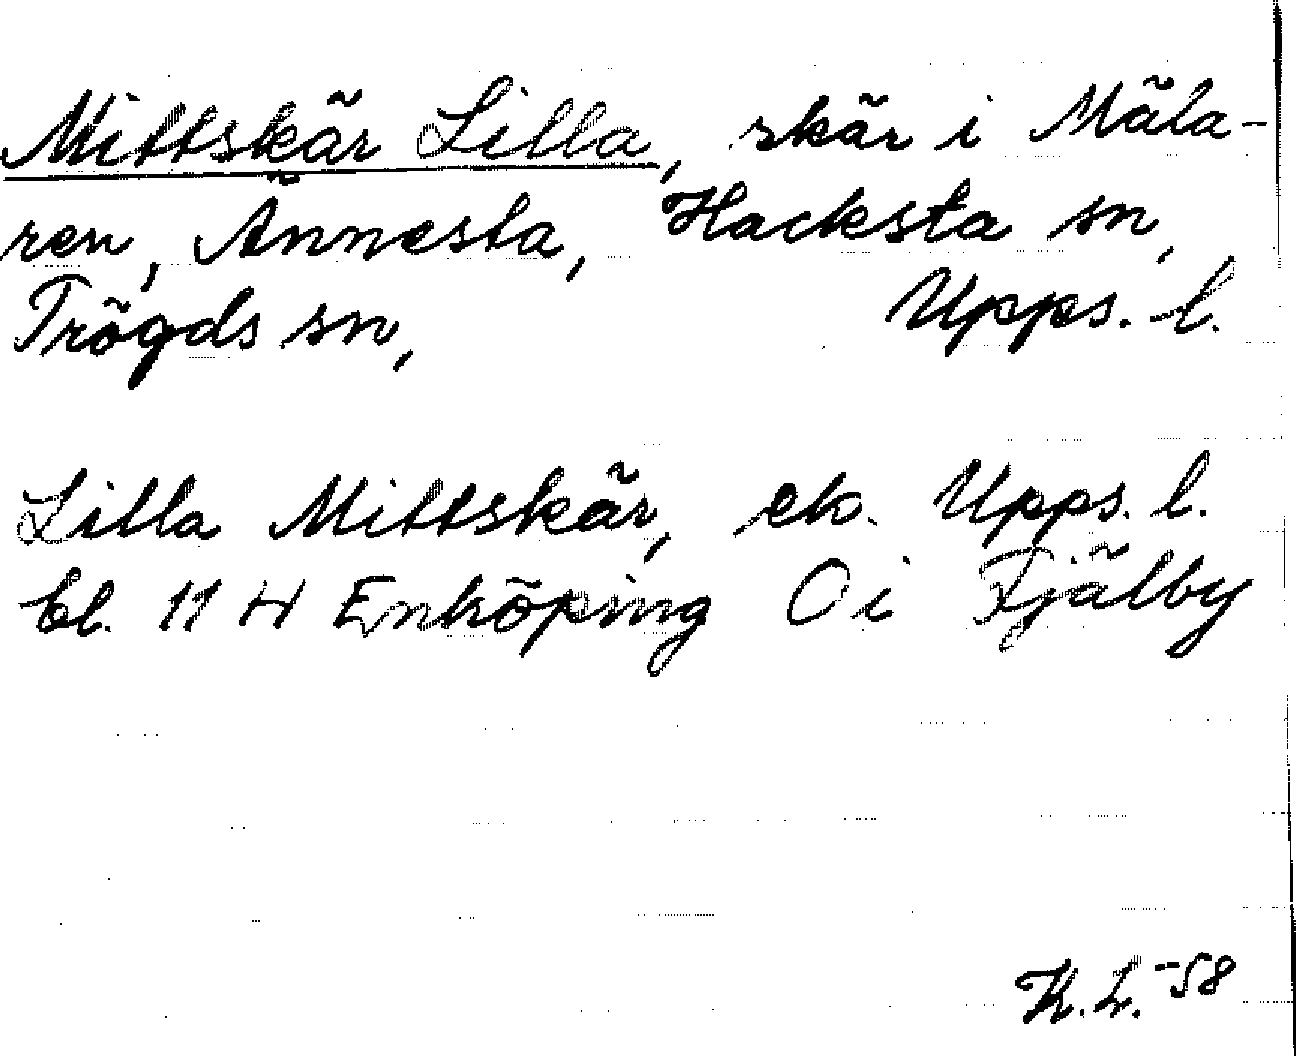 Mittskär Lilla, skär i Mäla-
ren, Ännesta, Hacksta sn,
Trögds sn, Upps. l.
Lilla Mittskär, ek. Upps. l.
bl. 11 H Enköping Oi Fjälby
K.L. -58